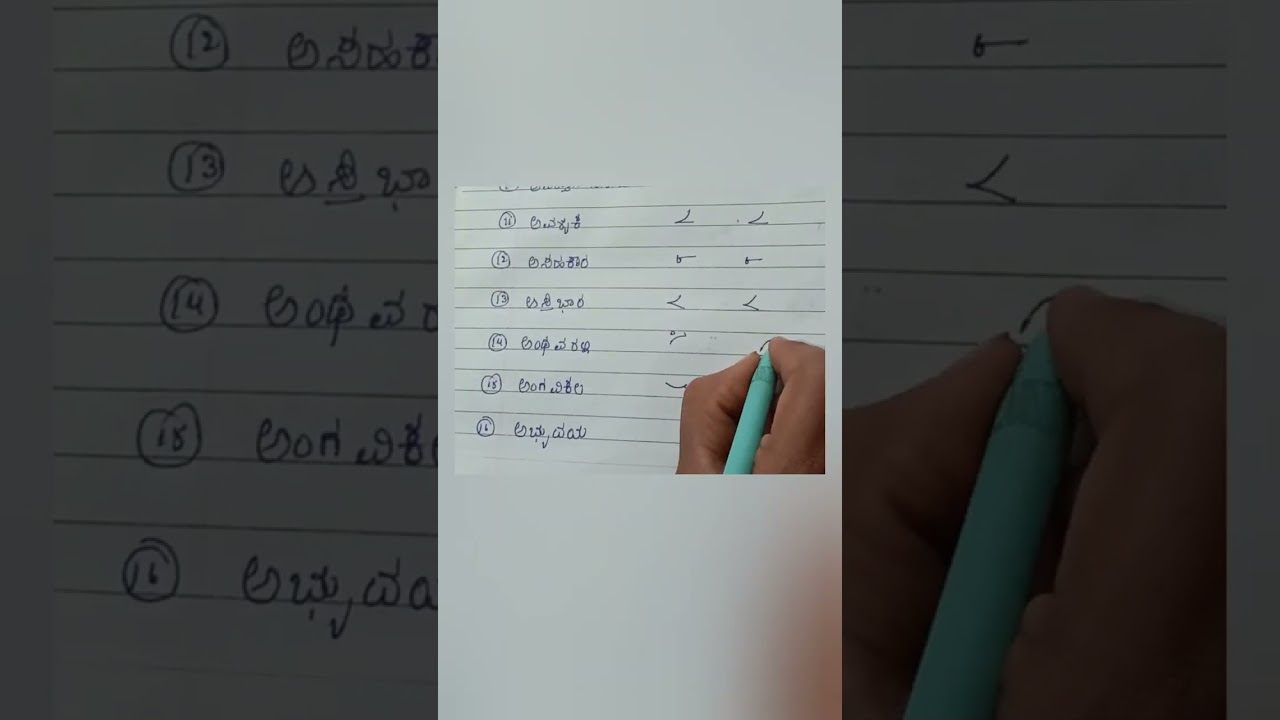 11 ಅವಶ್ಯಕ
12 ಅಸಹಕಾರ
13 ಅಭಿಭಾರ
14 ಅಂಥವರಲ್ಲಿ
15 ಅಂಗವಿಕಲ
16 ಅಭ್ಯುದಯ